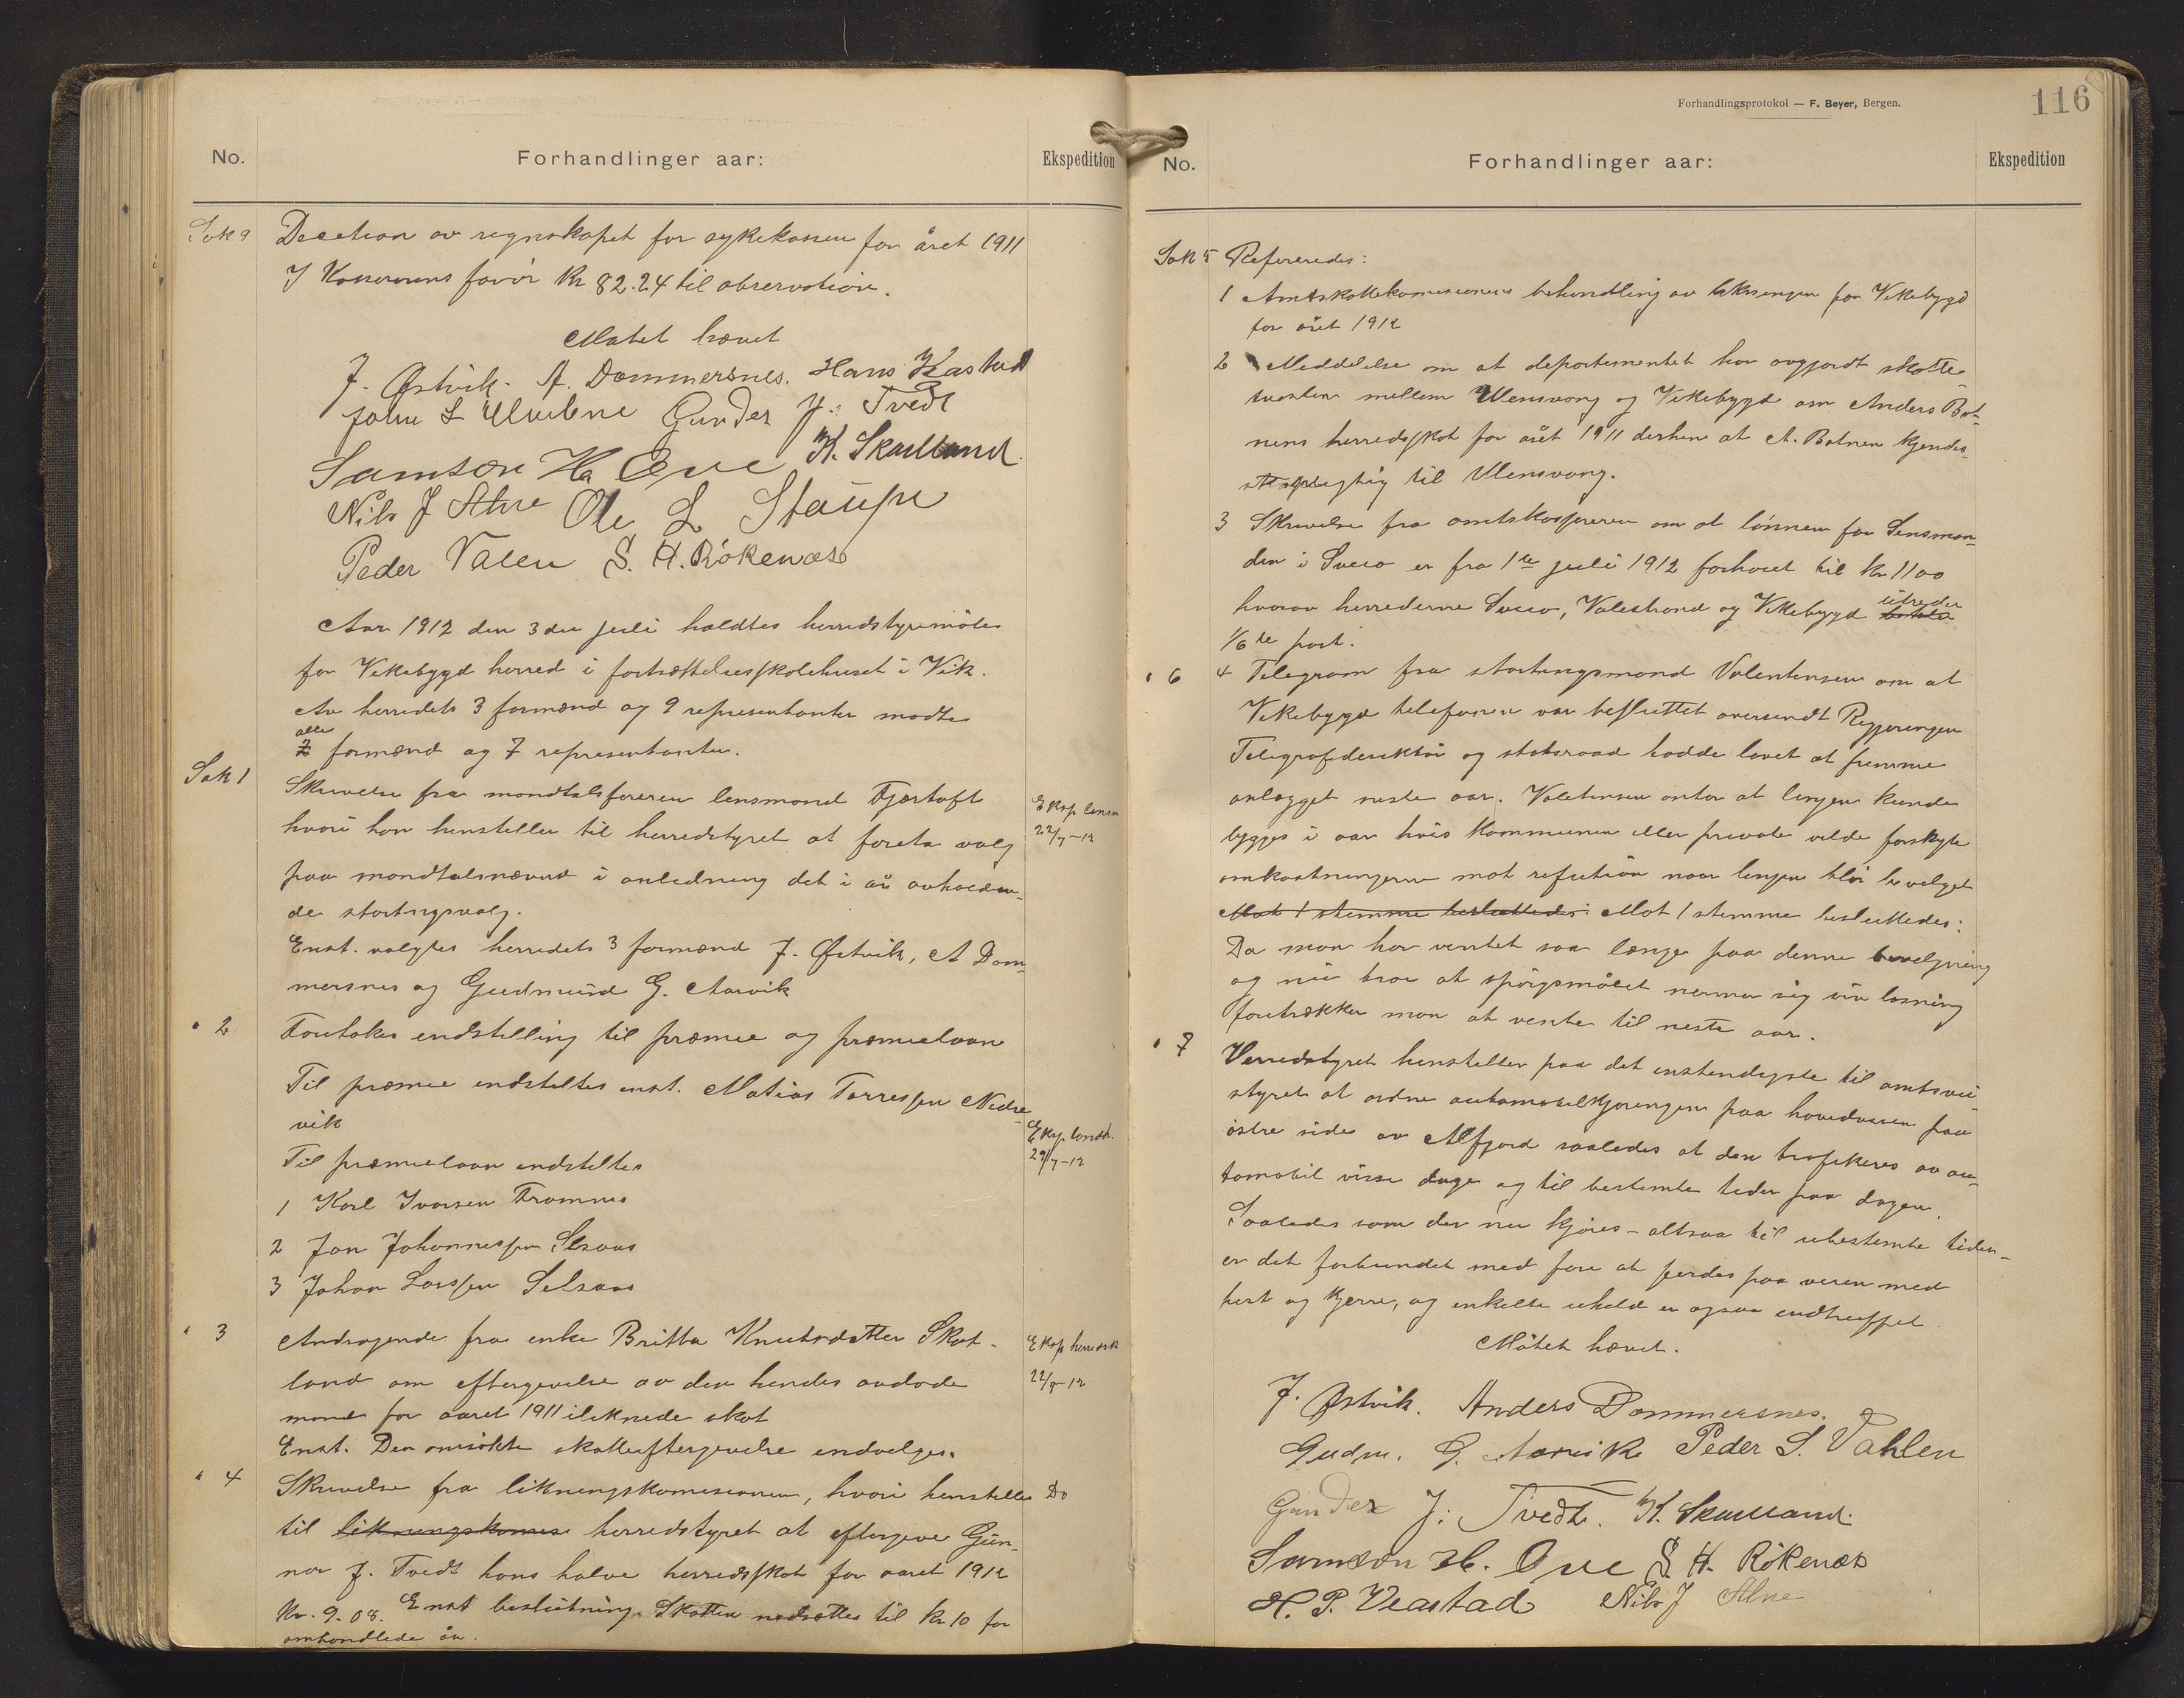 No.
Forhandlinger aar:
Ekspedition
Sak 9
Decition av regnskapet for sykekassen for året 1911
I Kassererens favör Kr 82.24 til observation.
Mötet hævet
J. Østvik. A. Dommersnes. Hans
John L Gunder J. Tvedt
Samson H. Ove K. Skartland.
Nils J Alne Ole L Staupe
Peder Valen S. H. Rökenæs
Aar 1912 den 3die juli holdtes herredstyremöte
for Vikebygd herred i fortsættelsesskolehuset i Vik.
Av herredets 3 formænd og 9 representanter mödte
alle
2 formænd og 7 representanter.
Sak 1
Skrivelse fra mandtalsföreren lensmand Fjærtoft
hvori han henstiller til herredstyret at foreta valg
paa mandtalsnævnd i anledning det i år avholden-
de stortingsvalg.
Enst. valgtes herredets 3 formænd J. Østvik, A Dom-
mersnes og Gudmund G. Aarvik
Eksp lensm
22/7-12
" 2
Foretokes indstilling til præmie og præmielaan
Til præmie indstiltes enst. Matias Torressen Nedre
vik
Til præmielaan indstiltes
1 Karl Ivarsen Framnes
2 Jan Johannessen Selsaas
3 Johan Larssen Selsaas
Eksp landh.
22/7-12
" 3
Andragende fra enke Britta Knutsdatter Skart-
land om eftergivelse av den hendes avdöde
mand for aaret 1911 iliknede skat
Enst. Den omsökte skatteeftergivelse indvilges.
Eksp herredsk
22/7-12
" 4
Skrivelse fra likningskomisionen, hvori henstilles
Do
til likningskomis herredstyret at eftergive Gun-
nar J. Tvedt hans halve herredsskat for aaret 1912
Kr. 9.08. Enst beslutning. Skatten nedsættes til kr 10 for
omhandlede år.
Forhandlingsprotokol — F. Beyer, Bergen.
116
No.
Forhandlinger aar:
Ekspedition
Sak 5 Refereredes:
1 Amtskattekomisionens behandling av likningen for Vikebygd
for året 1912
2 Meddelelse om at departementet har avgjordt skatte-
tvisten mellem Ulensvang og Vikebygd om Anders Bot-
nens herredsskat for året 1911 derhen at A. Botnen kjendes
skatpligtig til Ulensvang.
3 Skrivelse fra amtskassereren om at lönnen for Lensman-
den i Sveio er fra 1ste juli 1912 forhöiet til kr 1100
hvorav herrederne Sveio, Valestrand og Vikebygd
utreder
1/6te part.
" 6
4 Telegram fra stortingsmand Valentinsen om at
Vikebygd telefonen var besluttet oversendt Regjeringen
Telegrafdirektör og statsraad hadde lovet at fremme
anlægget neste aar. Valentinsen antar at linjen kunde
bygges i aar hvis kommunen eller private vilde forskyte
omkostningerne mot refution naar linjen blir bevilget
Mot 1 stemme besluttedes: Mot 1 stemme besluttedes:
Da man har ventet saa længe paa denne bevilgning
og nu tror at spörgsmålet nermer sig sin lösning
foretrækker man at vente til neste aar.
" 7
Herredstyret henstiller paa det instendigste til amtsvei-
styret at ordne automobilkjöringen paa hovedveien paa
östre side av Ålfjord saaledes at den trafikeres av au-
tomobil visse dage og til bestemte tider paa dagen.
Saaledes som der nu kjöres - altsaa til ubestemte tider -
er det forbundet med fare at ferdes paa veien med
hest og kjerre, og enkelte uheld er ogsaa indtruffet.
Mötet hævet.
J. Østvik. Anders Dommersnes.
Gudm. G. Aarvik Peder S. Vahlen
Gunder J. Tvedt. K. Skartland.
Samson H. Ove S. H. Rökenæs
H. P. Nils J Alne